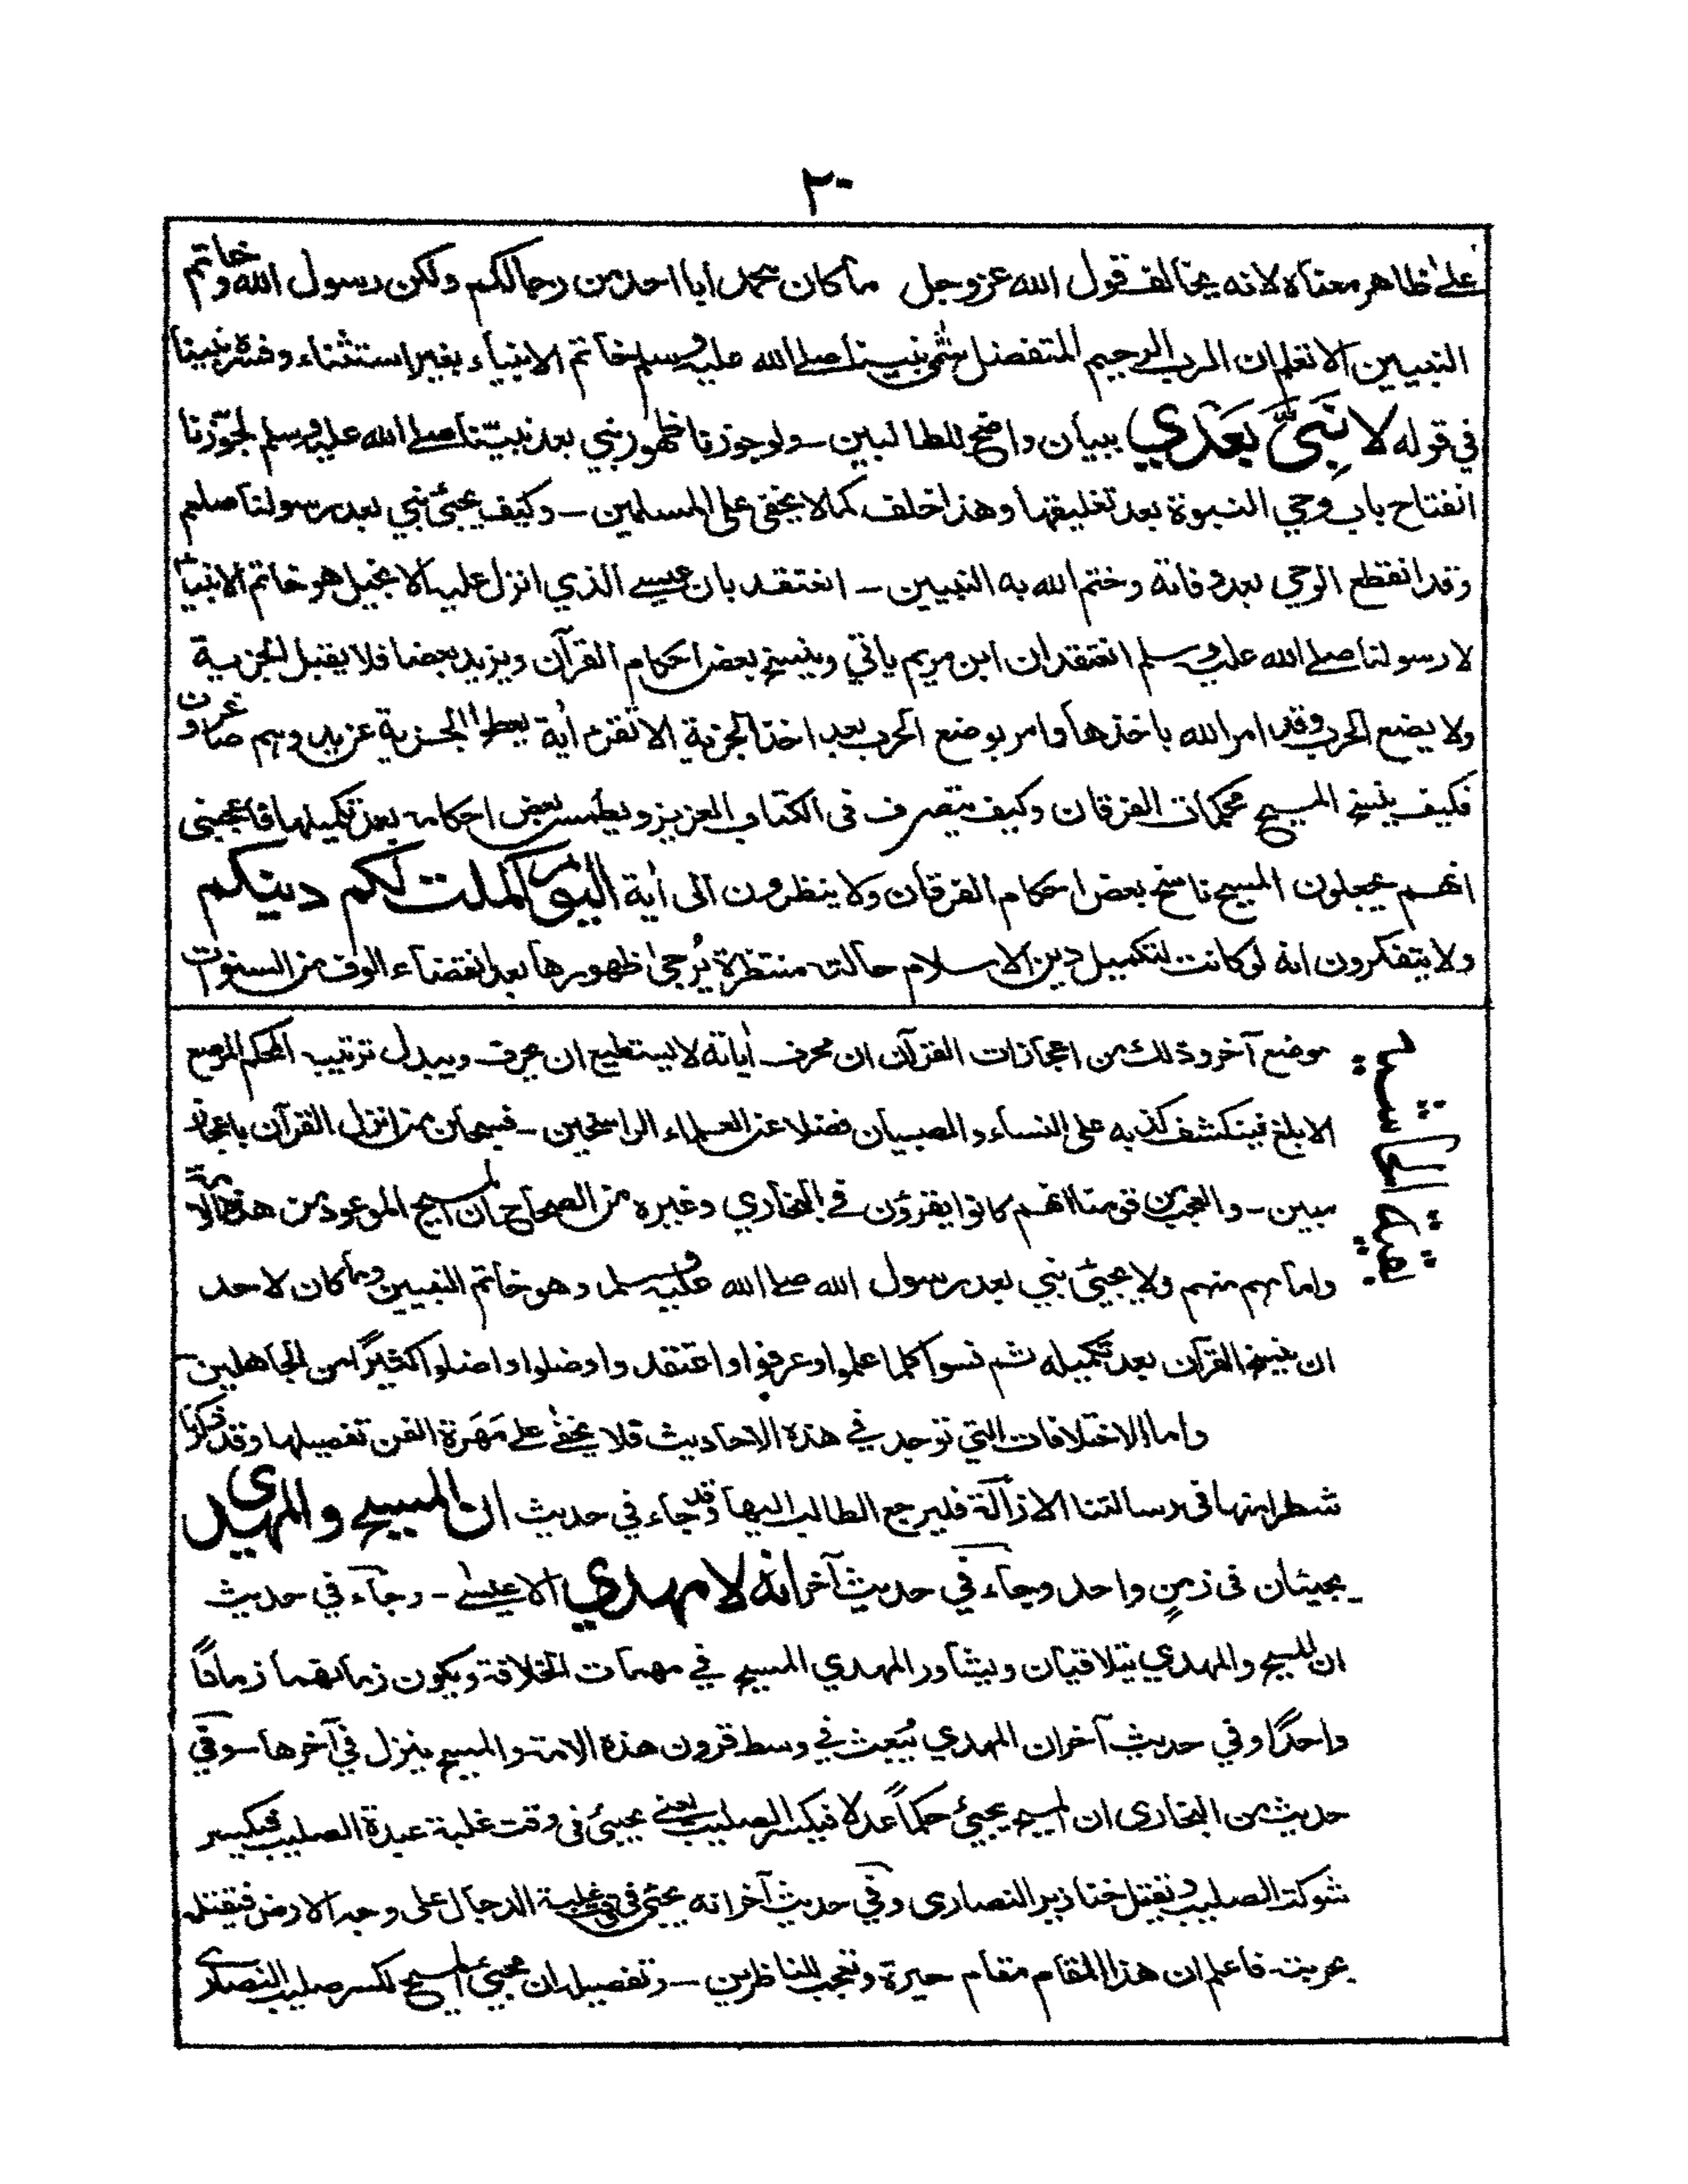 ٢٠
على ظاهر معناه لانه يخالف قول الله عز وجل ما كان محمد أبا احد من رجالكم ولكن رسول الله وخاتم
النبيين الا تعلم ان الرب الرحيم المتفضل سمّى نبينا صلى الله عليه وسلم خاتم الانبياء بغير استثناء وفسّره نبينا
في قوله لا نَبِيَّ بَعْدِي ببيان واضح للطالبين ــ ولو جوزنا ظهور نبي بعد نبيّنا صلى الله عليه وسلم لجوّزنا
انفتاح باب وحي النبوة بعد تغليقها وهذا خلف كما لا يخفى على المسلمين ــ وكيف يجئ نبي بعد رسولنا صلعم
وقد انقطع الوحي بعد وفاته وختم الله به النبيين ــ انعتقد بان عيسى الذي انزل عليه الانجيل هو خاتم الانبياء
لا رسولنا صلى الله عليه وسلم انعتقد ان ابن مريم ياتي وينسخ بعض احكام القرآن ويزيد بعضا فلا يقبل الجزية
ولا يضع الحرب وقد امر الله باخذها وامر بوضع الحرب بعد اخذ الجزية الا تقرء أية يعطوا الجزية عن يد وهم صاغرون
فكيف ينسخ المسيح محكمات الفرقان وكيف يتصرف فى الكتاب العزيز ويطمس بعض احكامه بعد تكميلها فاعجبنى
انهم يجعلون المسيح ناسخ بعض احكام الفرقان ولا ينظرون الى أية اليوم اكملت لكم دينكم
ولا يتفكرون انه لو كانت لتكميل دين الاسلام حالة منتظرة يُرجى ظهورها بعد انقضاء الوف من السنوات
بقية الحاشية
موضع آخر وذلك من اعجازات القرآن ان محرف أياته لا يستطيع ان يحرف ويبدل ترتيب المحكم المرصع
الابلغ فينكشف كذبه على النساء والصبيان فضلا عن العلماء الراسخين ــ فسبحان من انزل القرآن باعجاز
مبين ــ والعجب من قومنا انهم كانوا يقرؤن في البخاري وغيره من الصحاح ان المسيح الموعود من هذه الامة
وامامهم منهم ولا يجيئ نبي بعد رسول الله صلى الله عليه وسلم وهو خاتم النبيين وما كان لاحد
ان ينسخ القرآن بعد تكميله ثم نسوا كلما علموا وعرفوا واعتقدوا وضلوا واضلوا كثيرًا من الجاهلين ــ
واما الاختلافات التي توجد في هذه الاحاديث فلا يخفى على مَهَرة الفن تفصيلها وقد ذكرنا
شطرا منها فى رسالتنا الازالة فليرجع الطالب اليها وقد جاء في حديث ان المسيح والمهدى
يجيئان فى زمنٍ واحد وجاء في حديث آخر انه لا مهدي الا عيسى ــ وجآء في حديث
ان المسيح والمهدي يتلاقيان ويشاور المهدي المسيح في مهمات الخلافة ويكون زمانهما زمانًا
واحدًا وفي حديث آخر ان المهدي يُبعث في وسط قرون هذه الامة والمسيح ينزل في آخرها ــ وفي
حديث من البخارى ان المسيح يجيئ حكمًا عدلا فيكسر الصليب يعنى يجيئ فى وقت غلبة عبدة الصليب فيكسر
شوكة الصليب ويقتل خنازير النصارى وفي حديث آخر انه يجئ فى وقت غلبة الدجال على وجه الارض فيقتله
بحربته فاعلم ان هذا المقام مقام حيرة وتعجب للناظرين ــ وتفصيله ان مجيئ المسيح لكسر صليب النصارى